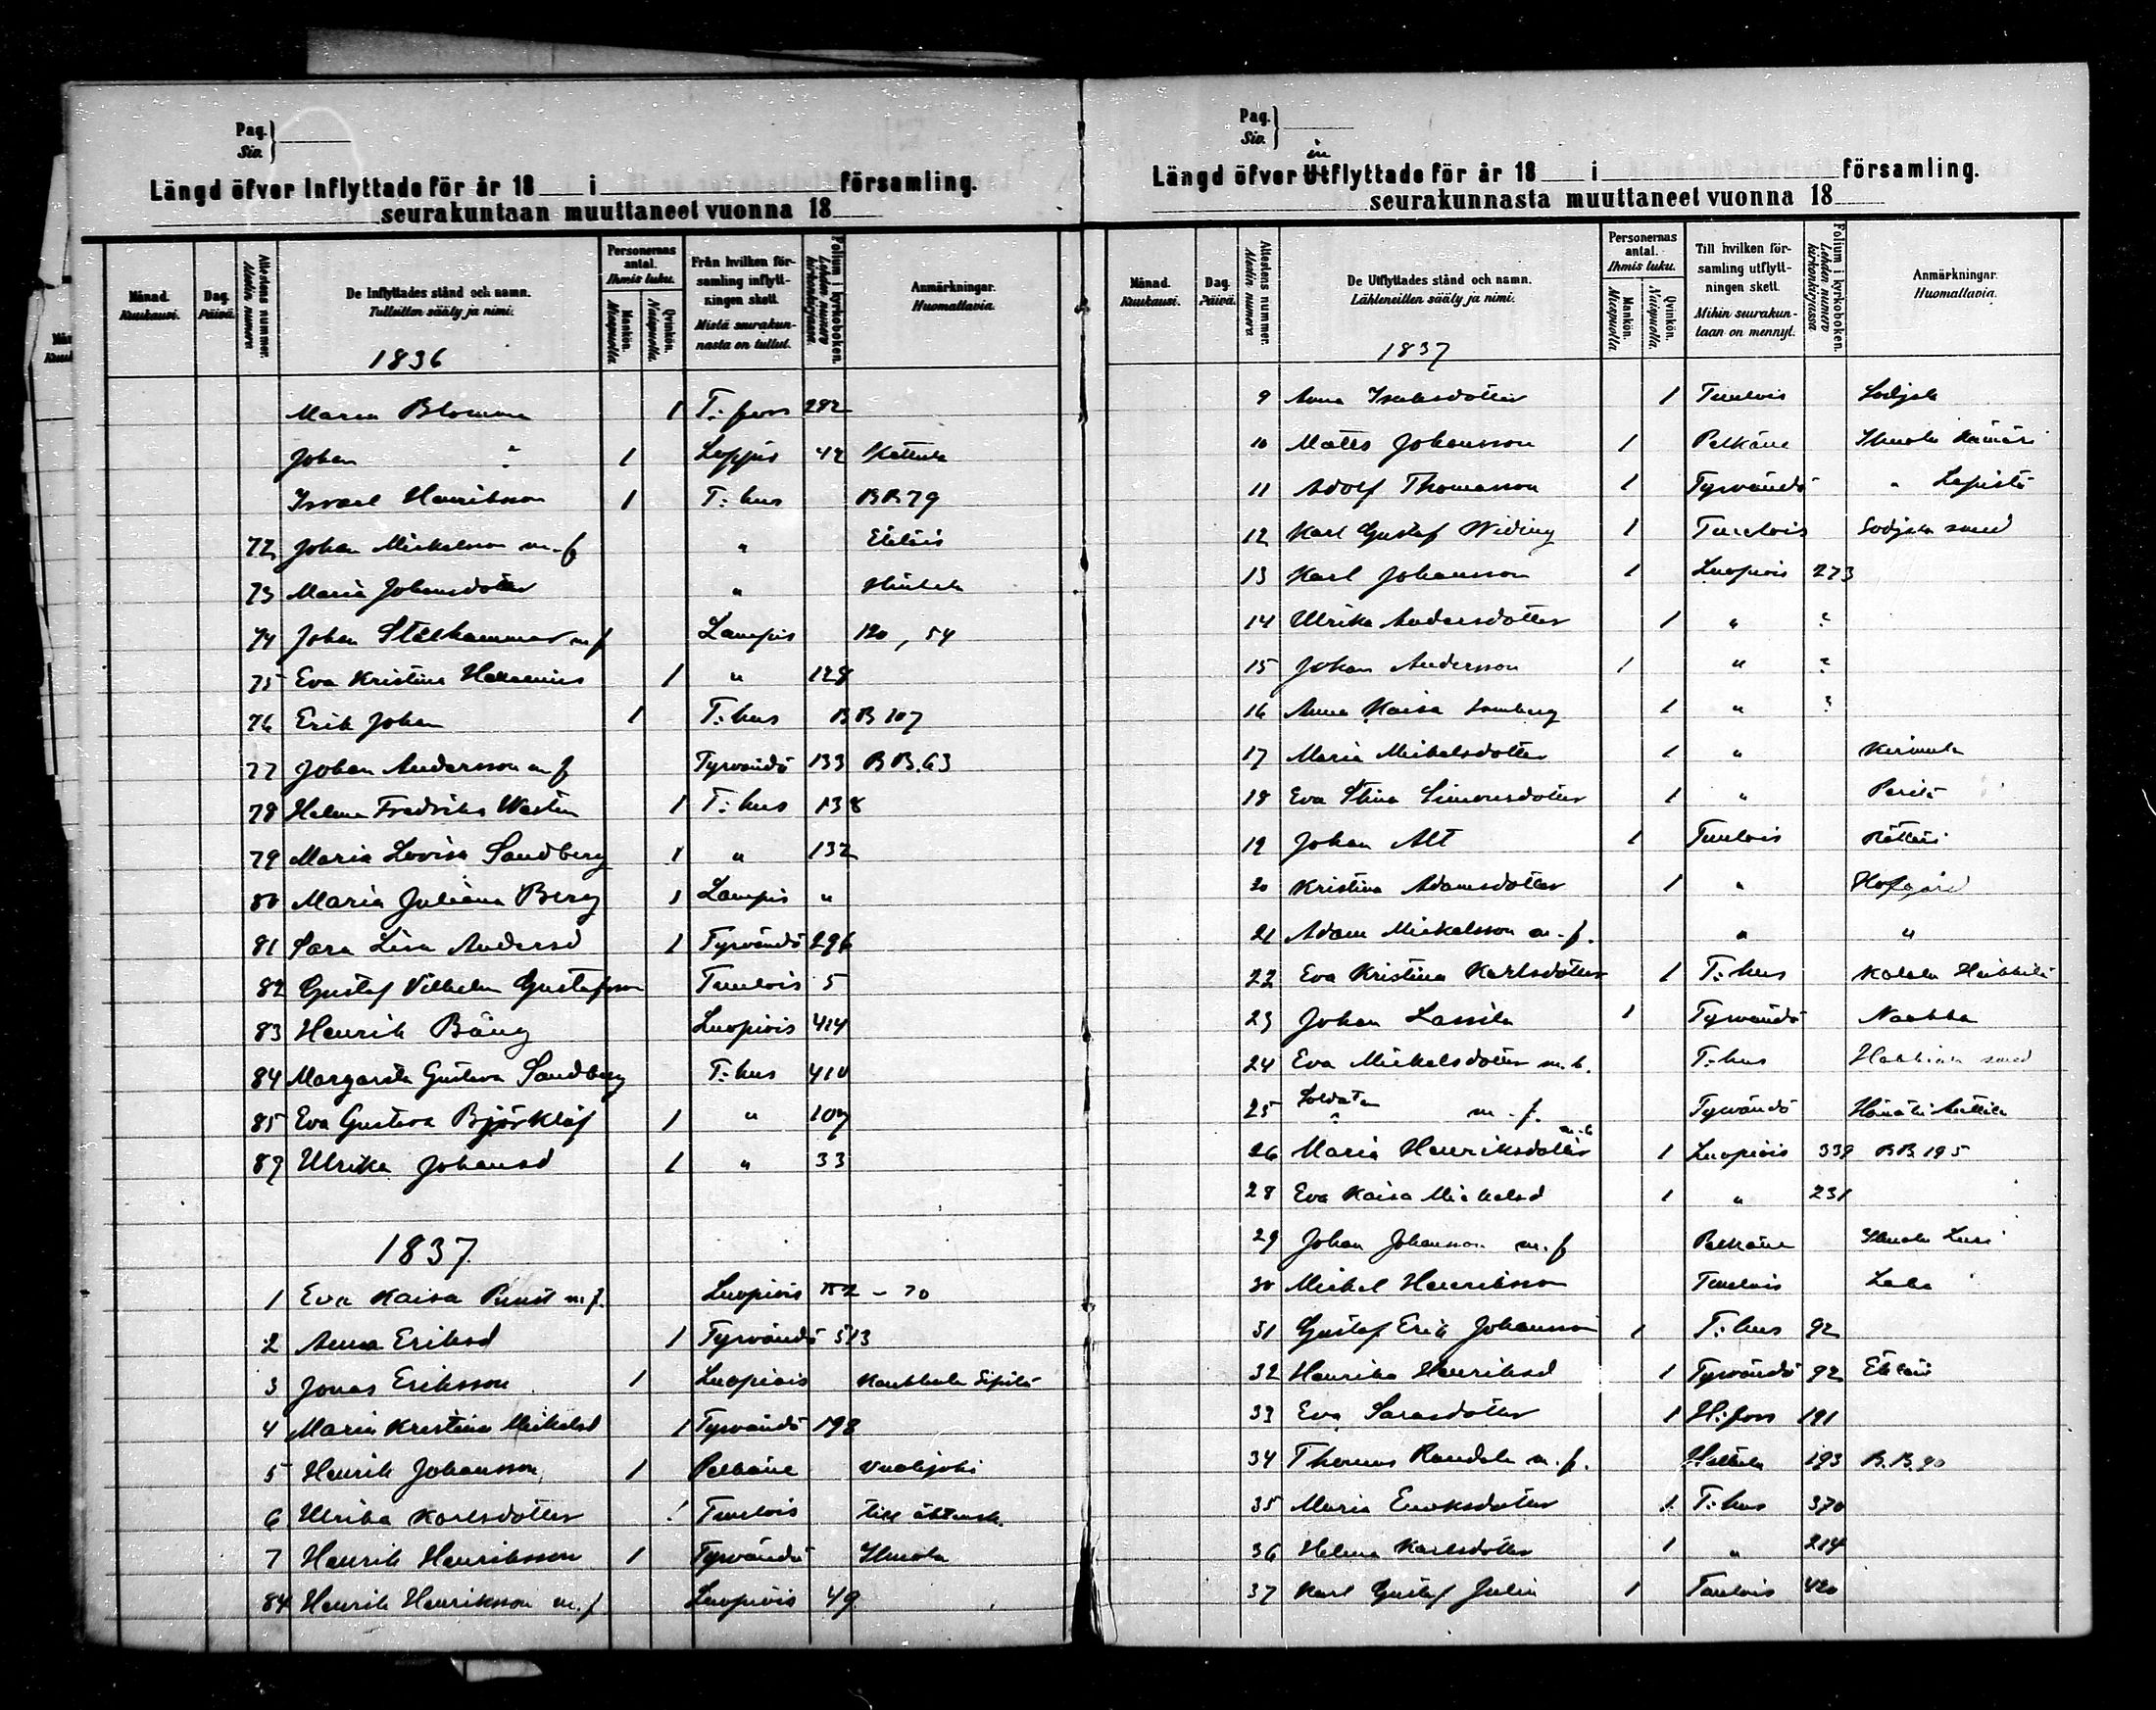 Pag.
Siv.
Längd öfver Inflyttade för år 18 i församling.
seurakuntaan muuttaneet vuonna 18
Månad. Kuukausi. Dag. Päivä. Attestens nummer. Attestin numero De Inflyttades stånd och namn. Tulleitten sääty ja nimi. Personernas antal. Ihmis luku. Mankön. Miespuolia Qvinkön. Naispuolia. Från hvilken församling inflyttningen skett. Mistä seurakunnasta on tullut. Folium i kyrkoboken. Lehden numero kirkonkirjassa. Anmärkningar. Huomattavia.
1836
Maria Bloman 1 T:fors 292
Johan " 1 Loppis 42 Kettula
Israel Henriksson 1 T:hus BB 79
72 Johan Mickelsson m.f " Eteläis
73 Maria Johansdotter "
74 Johan Stålhammar m f Lampis 120, 54
75 Eva Kristina 1 " 128
76 Erik Johan 1 T:hus BB 107
77 Johan Andersson m f Tyrvändö 133 BB.63
78 Helena Fredrika Westin 1 T:hus 138
79 Maria Lovisa Sandberg 1 " 132
80 Maria Juliana Berg 1 Lampis "
81 Sara Lisa Andersd 1 Tyrvändö 296
82 Gustaf Vilhelm Gustafsson Tuulois 5
83 Henrik Bäng Luopiois 414
84 Margareta Gustava Sandberg T:hus 410
85 Eva Gustava Björklöf 1 " 107
87 Ulrika Johansd 1 " 33
1837.
1 Eva Kaisa m.f. Luopiois 152 - 70
2 Anna Eriksd 1 Tyrvändö 513
3 Jonas Eriksson 1 Luopiois Kaukkala Sipilä
4 Maria Kristina Mickelsd 1 Tyrvändö 198
5 Henrik Johansson 1 Pelkäne Vuolijoki
6 Ulrika Karlsdotter 1 Tuulois till äktensk.
7 Henrik Henriksson 1 Tyrvändö Ilmola
84 Henrik Henriksson m.f Luopiois 49
Pag.
Siv.
in
Längd öfver Utflyttade för år 18 i församling.
seurakunnasta muuttaneet vuonna 18
Månad. Kuukausi. Dag. Päivä. Attestens nummer. Attestin numero De Utflyttades stånd och namn. Lähteneitten sääty ja nimi. Personernas antal. Ihmis luku. Mankön. Miespuolia Qvinkön. Naispuolia. Till hvilken församling utflyttningen skett. Mihin seurakuntaan on mennyt. Folium i kyrkoboken. Lehden numero kirkonkirjassa Anmärkningar. Huomattavia.
1837
9 Anna Isaksdotter 1 Tuulois Sodjala
10 Matts Johansson 1 Pelkäne Ilmola Kämäri
11 Adolf Thomasson 1 Tyrvändö " Lepistö
12 Karl Gustaf Widing 1 Tuulois Sodjala smed
13 Karl Johansson 1 Luopiois 273
14 Ulrika Andersdotter 1 " ?
15 Johan Andersson 1 " ?
16 Anna Kaisa 1 " ?
17 Maria Mickelsdotter 1 "
18 Eva Stina Simonsdotter 1 " Perilä
19 Johan Alt 1 Tuulois
20 Kristina Adamsdotter 1 " Hofgård
21 Adam Mickelsson m.f. " "
22 Eva Kristina Karlsdotter 1 T:hus Heikkilä
23 Johan Lassila 1 Tyrvändö Naakka
24 Eva Mickelsdotter m.b. T:hus smed
25 Soldaten m.f. Tyrvändö
26 Maria Henriksdotter m.b 1 Luopiois 339 BB 195
28 Eva Kaisa Mickelsd 1 " 231
29 Johan Johansson m.f Pelkäne Ilmola
30 Mickel Henriksson Tuulois
31 Gustaf Erik Johansson 1 T:hus 92
32 Henrika Henriksd 1 Tyrvändö 92 Eteläis
33 Eva Sarasdotter 1 H:fors 191
34 Thomas Randala m.f. 193 B.B.90
35 Maria Enoksdotter 1 T:hus 370
36 Helena Karlsdotter 1 " 214
37 Karl Gustaf Julin 1 Tuulois 420